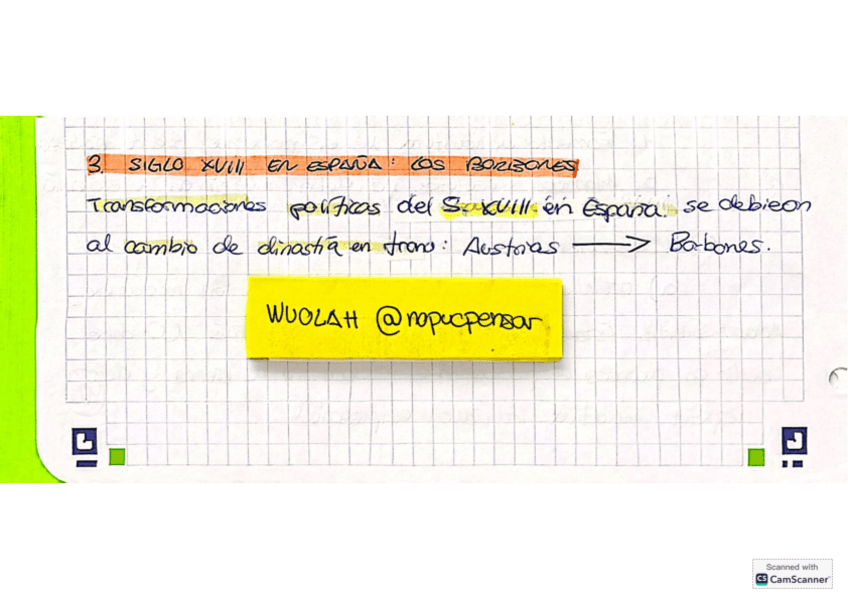 3. SIGLO XVIII EN ESPAÑA: LOS BORBONES
Transformaciones políticas del S. XVIII en España: se debieron
al cambio de dinastía en trono: Austrias → Borbones.
WUOLAH @nopucpensar
Scanned with
CS CamScanner